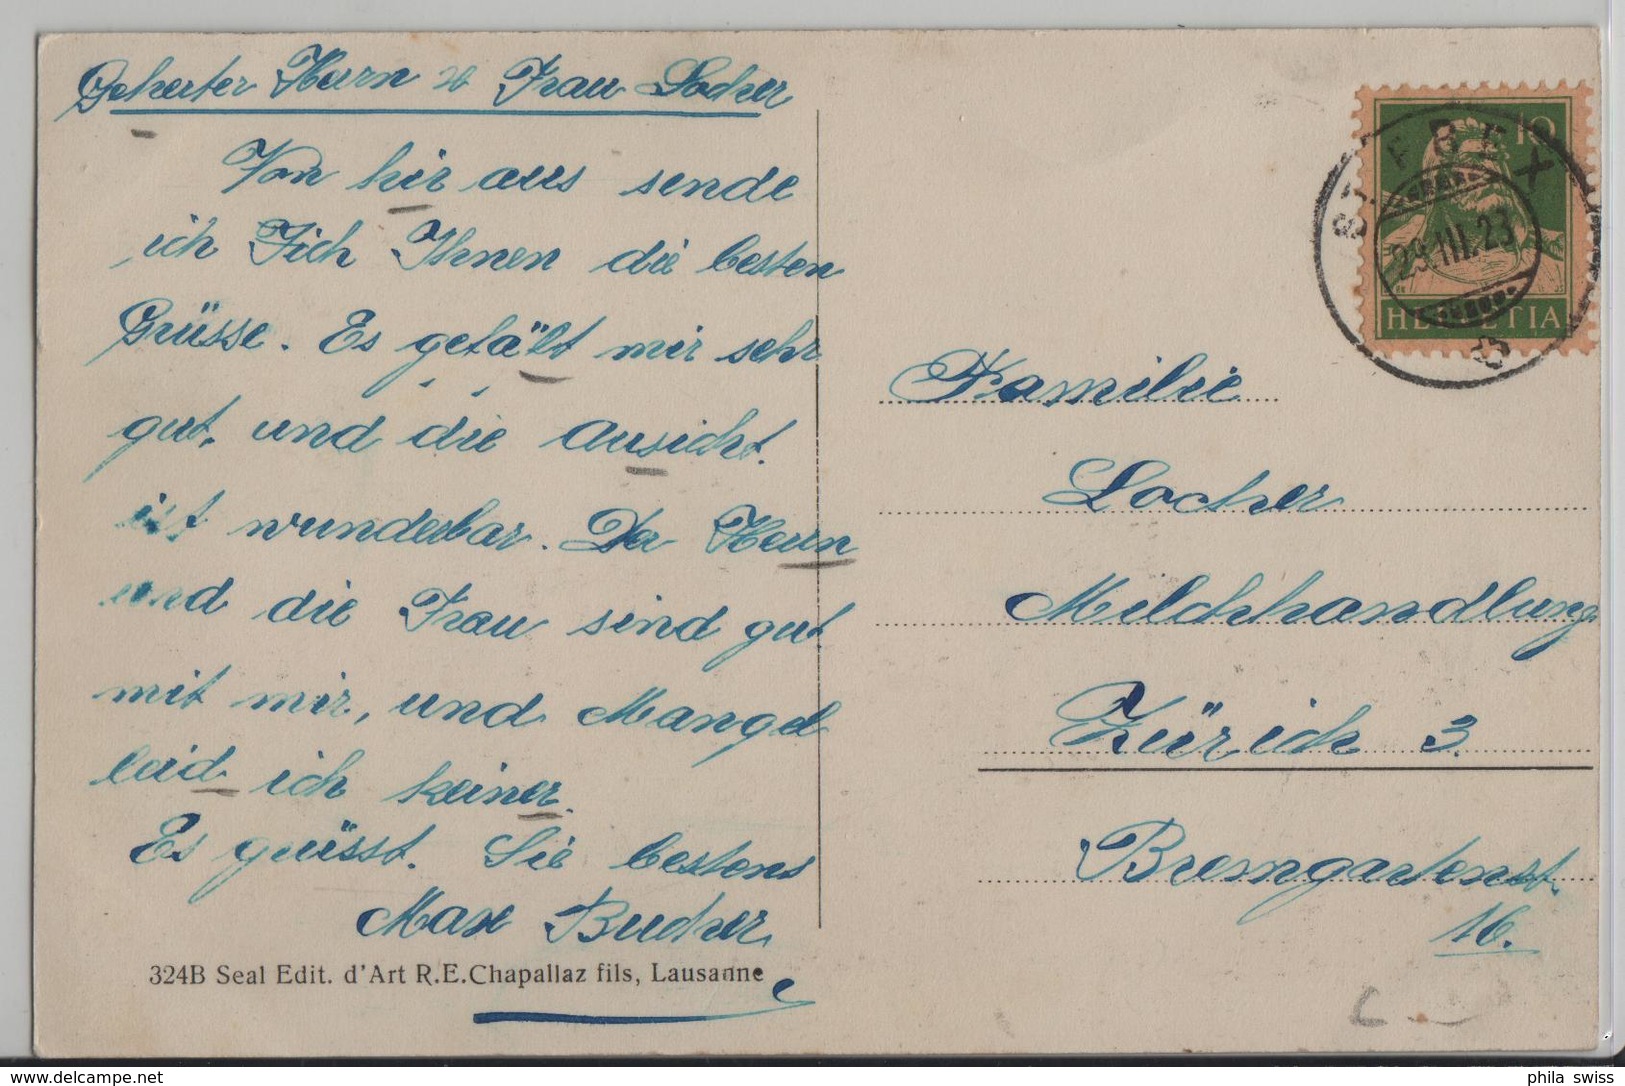 Geherter Herrn u Frau Locher
Von hir aus sende
ich Jich Ihnen die besten
Grüsse. Es gefält mir sehr
gut. und die ausicht.
ist wunderbar. Der Herrn
und die Frau sind gut
mit mir, und Mangel
leid ich keiner.
Es grüsst. Sie bestens
Max Bucher
324B Seal Edit. d'Art R.E.Chapallaz fils, Lausanne
10
29.III.23
HELVETIA
Familie
Locher
Milchhandlung
Zürich 3.
Bremgartenst.
16.
phila swiss